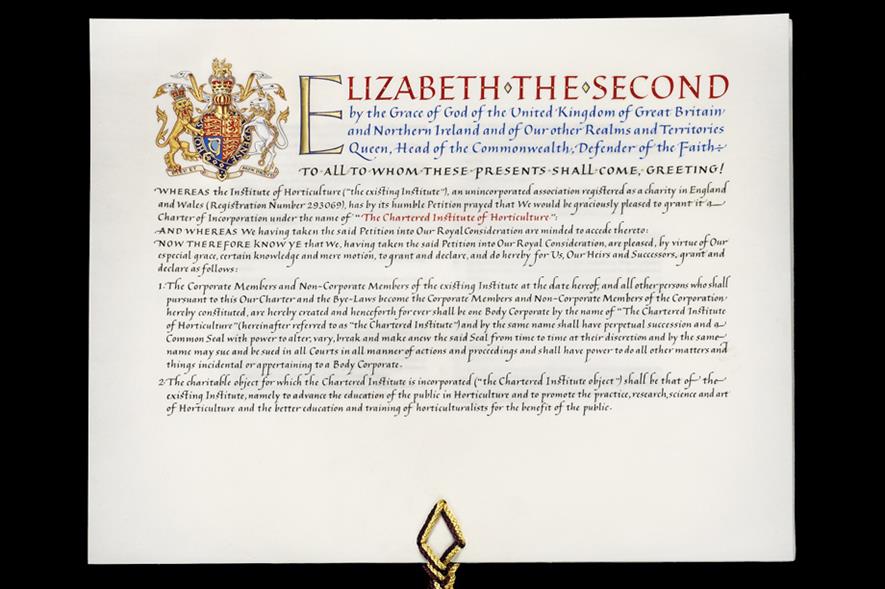 ELIZABETH◊THE◊SECOND
by the Grace of God of the United Kingdom of Great Britain
and Northern Ireland and of Our other Realms and Territories
Queen, Head of the Commonwealth, Defender of the Faith÷
TO ALL TO WHOM THESE PRESENTS SHALL COME, GREETING!
WHEREAS the Institute of Horticulture ("the existing Institute"), an unincorporated association registered as a charity in England
and Wales (Registration Number 293069), has by its humble Petition prayed that We would be graciously pleased to grant it a
Charter of Incorporation under the name of "The Chartered Institute of Horticulture":
AND WHEREAS We having taken the said Petition into Our Royal Consideration are minded to accede thereto:
NOW THEREFORE KNOW YE that We, having taken the said Petition into Our Royal Consideration, are pleased, by virtue of Our
especial grace, certain knowledge and mere motion, to grant and declare, and do hereby for Us, Our Heirs and Successors, grant and
declare as follows:
1. The Corporate Members and Non-Corporate Members of the existing Institute at the date hereof, and all other persons who shall
pursuant to this Our Charter and the Bye-Laws become the Corporate Members and Non-Corporate Members of the Corporation
hereby constituted, are hereby created and henceforth for ever shall be one Body Corporate by the name of "The Chartered Institute
of Horticulture" (hereinafter referred to as "the Chartered Institute") and by the same name shall have perpetual succession and a
Common Seal with power to alter, vary, break and make anew the said Seal from time to time at their discretion and by the same
name may sue and be sued in all Courts in all manner of actions and proceedings and shall have power to do all other matters and
things incidental or appertaining to a Body Corporate.
2. The charitable object for which the Chartered Institute is incorporated ("the Chartered Institute object") shall be that of the
existing Institute, namely to advance the education of the public in Horticulture and to promote the practice, research, science and art
of Horticulture and the better education and training of horticulturalists for the benefit of the public.